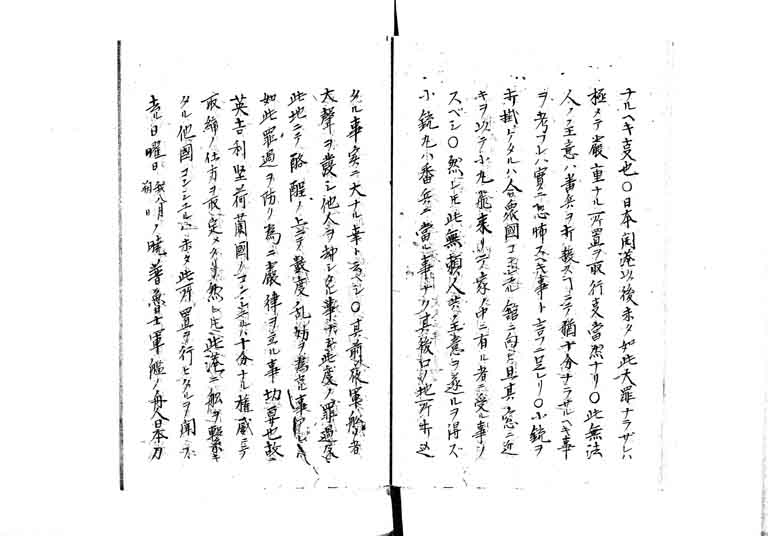 ナルヘキ支也〇日本開港以後未タ如此大罪ナラザレハ
極メテ嚴重ナル所置ヲ取行支當然ナリ〇此無法
人ノ主意ハ番兵ヲ折殺スコニテ猶十分ナラサルヘキ事
ヲ考フレハ實ニ恐怖ス支事ト言フニ足レリ〇小銃ヲ
折掛ケタルハ合衆國コンシユル館ニ向ヒ且其窓ニ近
キヲ以テ小丸飛来リテ家ノ中ニ有ル者ニ受ル事ヲ
スベシ〇然レ圧此無頼ノ人共ノ主意ヲ遂ルヲ得ズ
小銃丸小番兵ニ當ル事ナリ其後口ノ地所
タル事實ニ大ナル幸ト云ベシ〇其前夜軍船ノ者
大聲ヲ發シ他人ヲ却シタル事 此度ノ罪過
此地ニテ酩酲ノ上ニテ數度ノ乱妨ヲ為
如此罪過ヲ防ク為ニ嚴律ヲ立ル事切要也故ニ
英吉利堅荷蘭國ノコンシユルハ十分ナル權威ニテ
取締ノ仕方ヲ取定メタリ然レ圧此港ニ船ヲ繫キ
タル他國コンシユルハ未タ此所置ヲ行ヒタルヲ聞ズ
去ル日曜日我八月朔日ノ曉普魯士軍艦ノ舟人日本刀